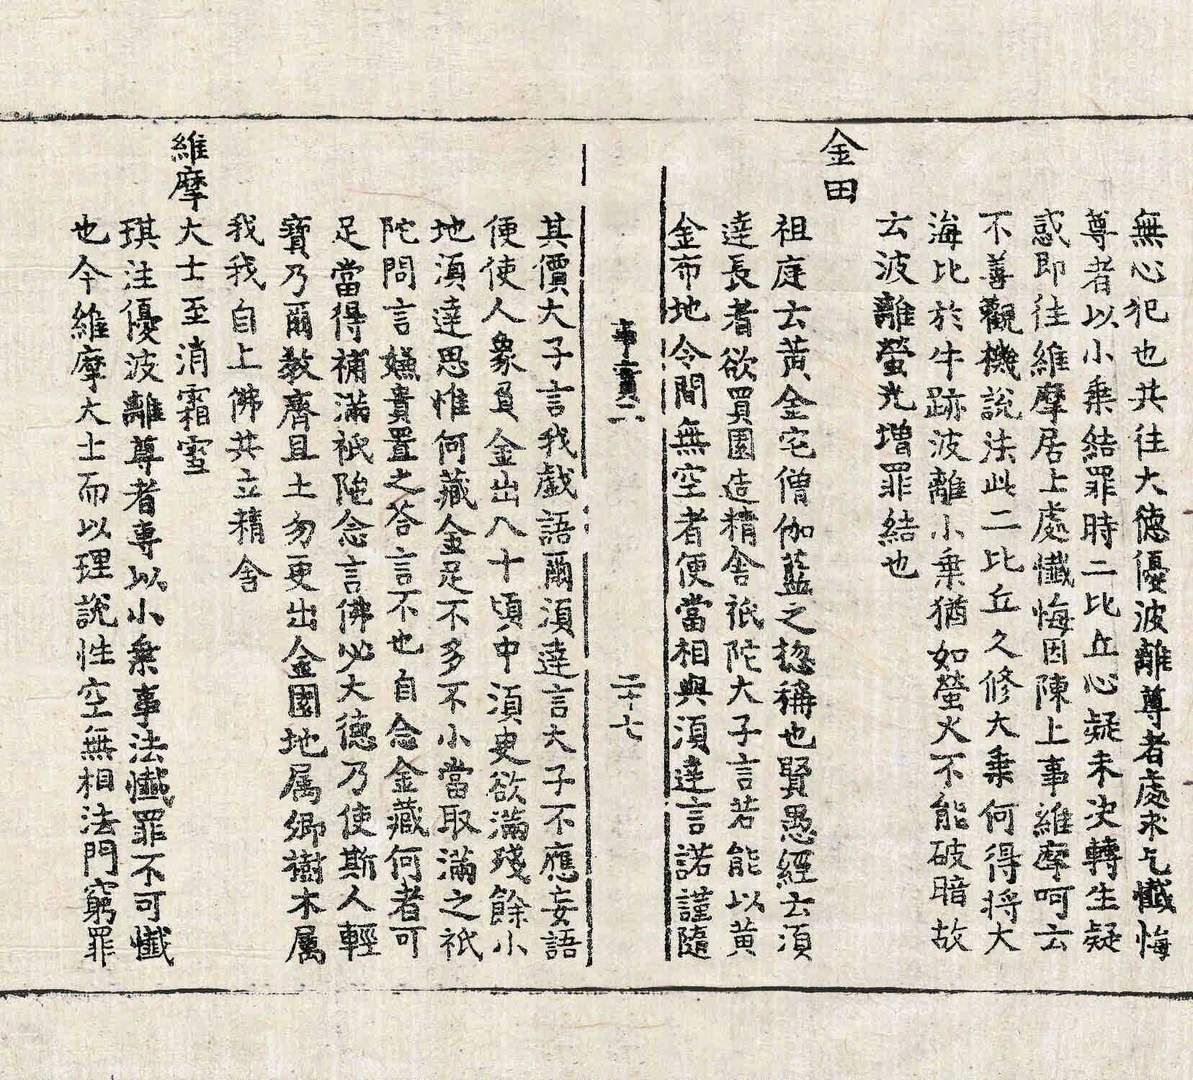 無心犯也共往大德優波離尊者處求乞懺悔
尊者以小乘結罪時二比丘心疑未決轉生疑
惑即往維摩居士處懺悔因陳上事維摩呵云
不善觀機說法此二比丘久修大乘何得將大
海比於牛跡波離小乘猶如螢火不能破暗故
云波離螢光增罪結也
金田
祖庭云黃金宅僧伽藍之揔稱也賢愚經云湏
達長者欲買園造精舍祇陀大子言若能以黃
金布地令間無空者便當相與湏達言諾謹隨
事實二
二十七
其價大子言我戲語爾湏達言大子不應妄語
便使人象負金出八十頃中湏臾欲滿殘餘小
地湏達思惟何藏金足不多不小當取滿之祇
陀問言嫌貴置之答言不也自念金藏何者可
足當得補滿祇陁念言佛必大德乃使斯人輕
寶乃爾敎齊且止勿更出金園地属卿樹木属
我我自上佛共立精舍
維摩大士至消霜雪
琪注優波離尊者專以小乘事法懺罪不可懺
也今維摩大士而以理說性空無相法門窮罪